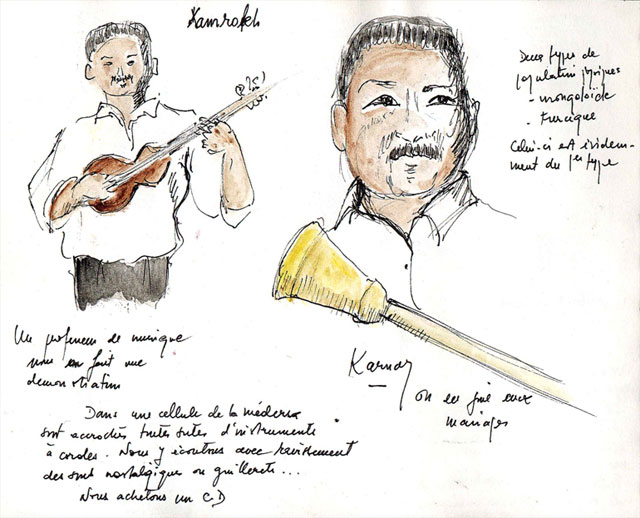 Deux types de
population physiques
- mongoloïde
- turcique
Celui-ci est évidem-
-ment du 1er type
Un professeur de musique
nous en fait une
démonstration
Karnay
on en joue aux
mariages
Dans une cellule de la médersa
sont accrochés toutes sortes d'instruments
à cordes. Nous y écoutons avec ravissement
des sont nostalgique ou guillerets...
Nous achetons un C.D